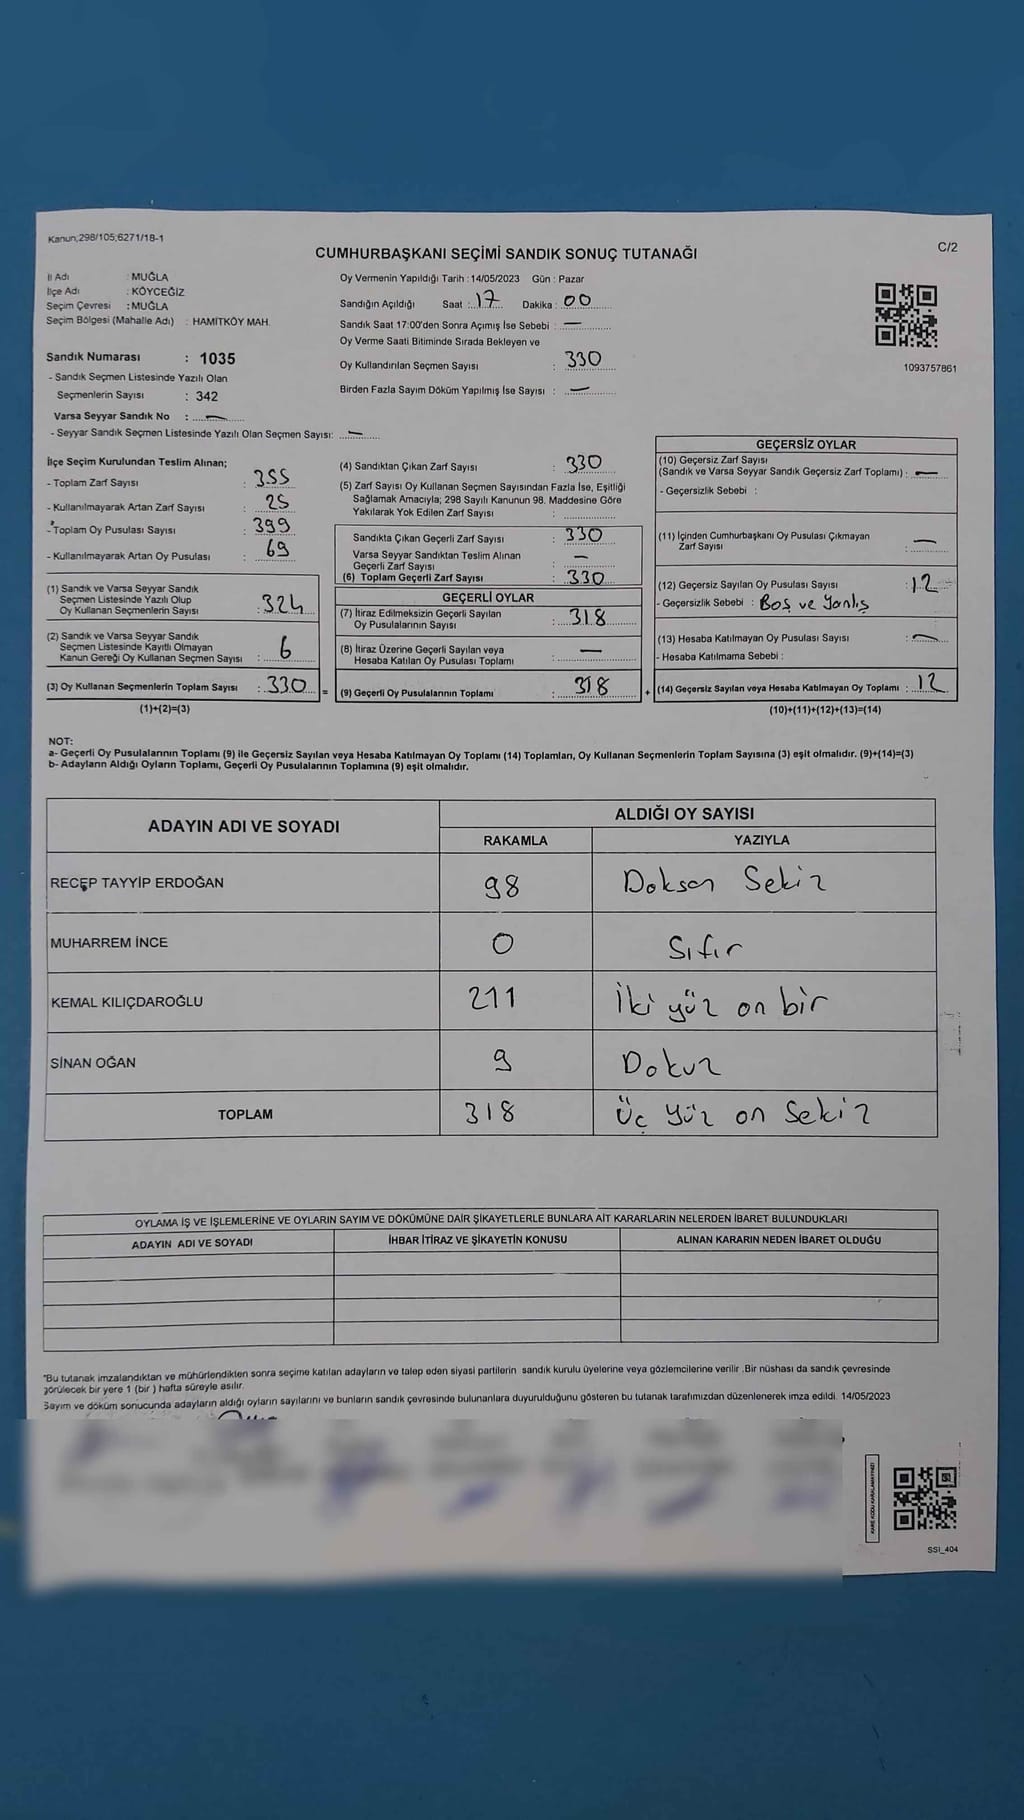 Kanun;298/105;6271/18-1
C/2
CUMHURBAŞKANI SEÇİMİ SANDIK SONUÇ TUTANAĞI
İl Adı : MUĞLA
İlçe Adı : KÖYCEĞİZ
Seçim Çevresi : MUĞLA
Seçim Bölgesi (Mahalle Adı) : HAMİTKÖY MAH.
Sandık Numarası : 1035
- Sandık Seçmen Listesinde Yazılı Olan
Seçmenlerin Sayısı : 342
Varsa Seyyar Sandık No : —
- Seyyar Sandık Seçmen Listesinde Yazılı Olan Seçmen Sayısı: —
Oy Vermenin Yapıldığı Tarih : 14/05/2023 Gün : Pazar
Sandığın Açıldığı Saat : 17 Dakika : 00
Sandık Saat 17:00'den Sonra Açımış İse Sebebi : —
Oy Verme Saati Bitiminde Sırada Bekleyen ve
Oy Kullandırılan Seçmen Sayısı : 330
Birden Fazla Sayım Döküm Yapılmış İse Sayısı : —
1093757861
İlçe Seçim Kurulundan Teslim Alınan;
- Toplam Zarf Sayısı : 355
- Kullanılmayarak Artan Zarf Sayısı : 25
- Toplam Oy Pusulası Sayısı : 399
- Kullanılmayarak Artan Oy Pusulası : 69
(1) Sandık ve Varsa Seyyar Sandık
Seçmen Listesinde Yazılı Olup
Oy Kullanan Seçmenlerin Sayısı : 324
(2) Sandık ve Varsa Seyyar Sandık
Seçmen Listesinde Kayıtlı Olmayan
Kanun Gereği Oy Kullanan Seçmen Sayısı : 6
(3) Oy Kullanan Seçmenlerin Toplam Sayısı : 330 =
(1)+(2)=(3)
(4) Sandıktan Çıkan Zarf Sayısı : 330
(5) Zarf Sayısı Oy Kullanan Seçmen Sayısından Fazla İse, Eşitliği
Sağlamak Amacıyla; 298 Sayılı Kanunun 98. Maddesine Göre
Yakılarak Yok Edilen Zarf Sayısı :
Sandıkta Çıkan Geçerli Zarf Sayısı : 330
Varsa Seyyar Sandıktan Teslim Alınan
Geçerli Zarf Sayısı : —
(6) Toplam Geçerli Zarf Sayısı : 330
GEÇERLİ OYLAR
(7) İtiraz Edilmeksizin Geçerli Sayılan
Oy Pusulalarının Sayısı : 318
(8) İtiraz Üzerine Geçerli Sayılan veya
Hesaba Katılan Oy Pusulası Toplamı : —
(9) Geçerli Oy Pusulalarının Toplamı : 318 +
GEÇERSİZ OYLAR
(10) Geçersiz Zarf Sayısı
(Sandık ve Varsa Seyyar Sandık Geçersiz Zarf Toplamı) : —
- Geçersizlik Sebebi :
(11) İçinden Cumhurbaşkanı Oy Pusulası Çıkmayan
Zarf Sayısı : —
(12) Geçersiz Sayılan Oy Pusulası Sayısı : 12
- Geçersizlik Sebebi : Boş ve Yanlış
(13) Hesaba Katılmayan Oy Pusulası Sayısı : —
- Hesaba Katılmama Sebebi :
(14) Geçersiz Sayılan veya Hesaba Katılmayan Oy Toplamı : 12
(10)+(11)+(12)+(13)=(14)
NOT:
a- Geçerli Oy Pusulalarının Toplamı (9) ile Geçersiz Sayılan veya Hesaba Katılmayan Oy Toplamı (14) Toplamları, Oy Kullanan Seçmenlerin Toplam Sayısına (3) eşit olmalıdır. (9)+(14)=(3)
b- Adayların Aldığı Oyların Toplamı, Geçerli Oy Pusulalarının Toplamına (9) eşit olmalıdır.
ADAYIN ADI VE SOYADI ALDIĞI OY SAYISI
RAKAMLA YAZIYLA
RECEP TAYYİP ERDOĞAN 98 Doksan Sekiz
MUHARREM İNCE 0 Sıfır
KEMAL KILIÇDAROĞLU 211 İki yüz on bir
SİNAN OĞAN 9 Dokuz
TOPLAM 318 Üç Yüz on Sekiz
OYLAMA İŞ VE İŞLEMLERİNE VE OYLARIN SAYIM VE DÖKÜMÜNE DAİR ŞİKAYETLERLE BUNLARA AİT KARARLARIN NELERDEN İBARET BULUNDUKLARI
ADAYIN ADI VE SOYADI İHBAR İTİRAZ VE ŞİKAYETİN KONUSU ALINAN KARARIN NEDEN İBARET OLDUĞU
*Bu tutanak imzalandıktan ve mühürlendikten sonra seçime katılan adayların ve talep eden siyasi partilerin sandık kurulu üyelerine veya gözlemcilerine verilir .Bir nüshası da sandık çevresinde
görülecek bir yere 1 (bir ) hafta süreyle asılır.
Sayım ve döküm sonucunda adayların aldığı oyların sayılarını ve bunların sandık çevresinde bulunanlara duyurulduğunu gösteren bu tutanak tarafımızdan düzenlenerek imza edildi. 14/05/2023
KARE KODU KARALAMAYINIZ!
SSI_404